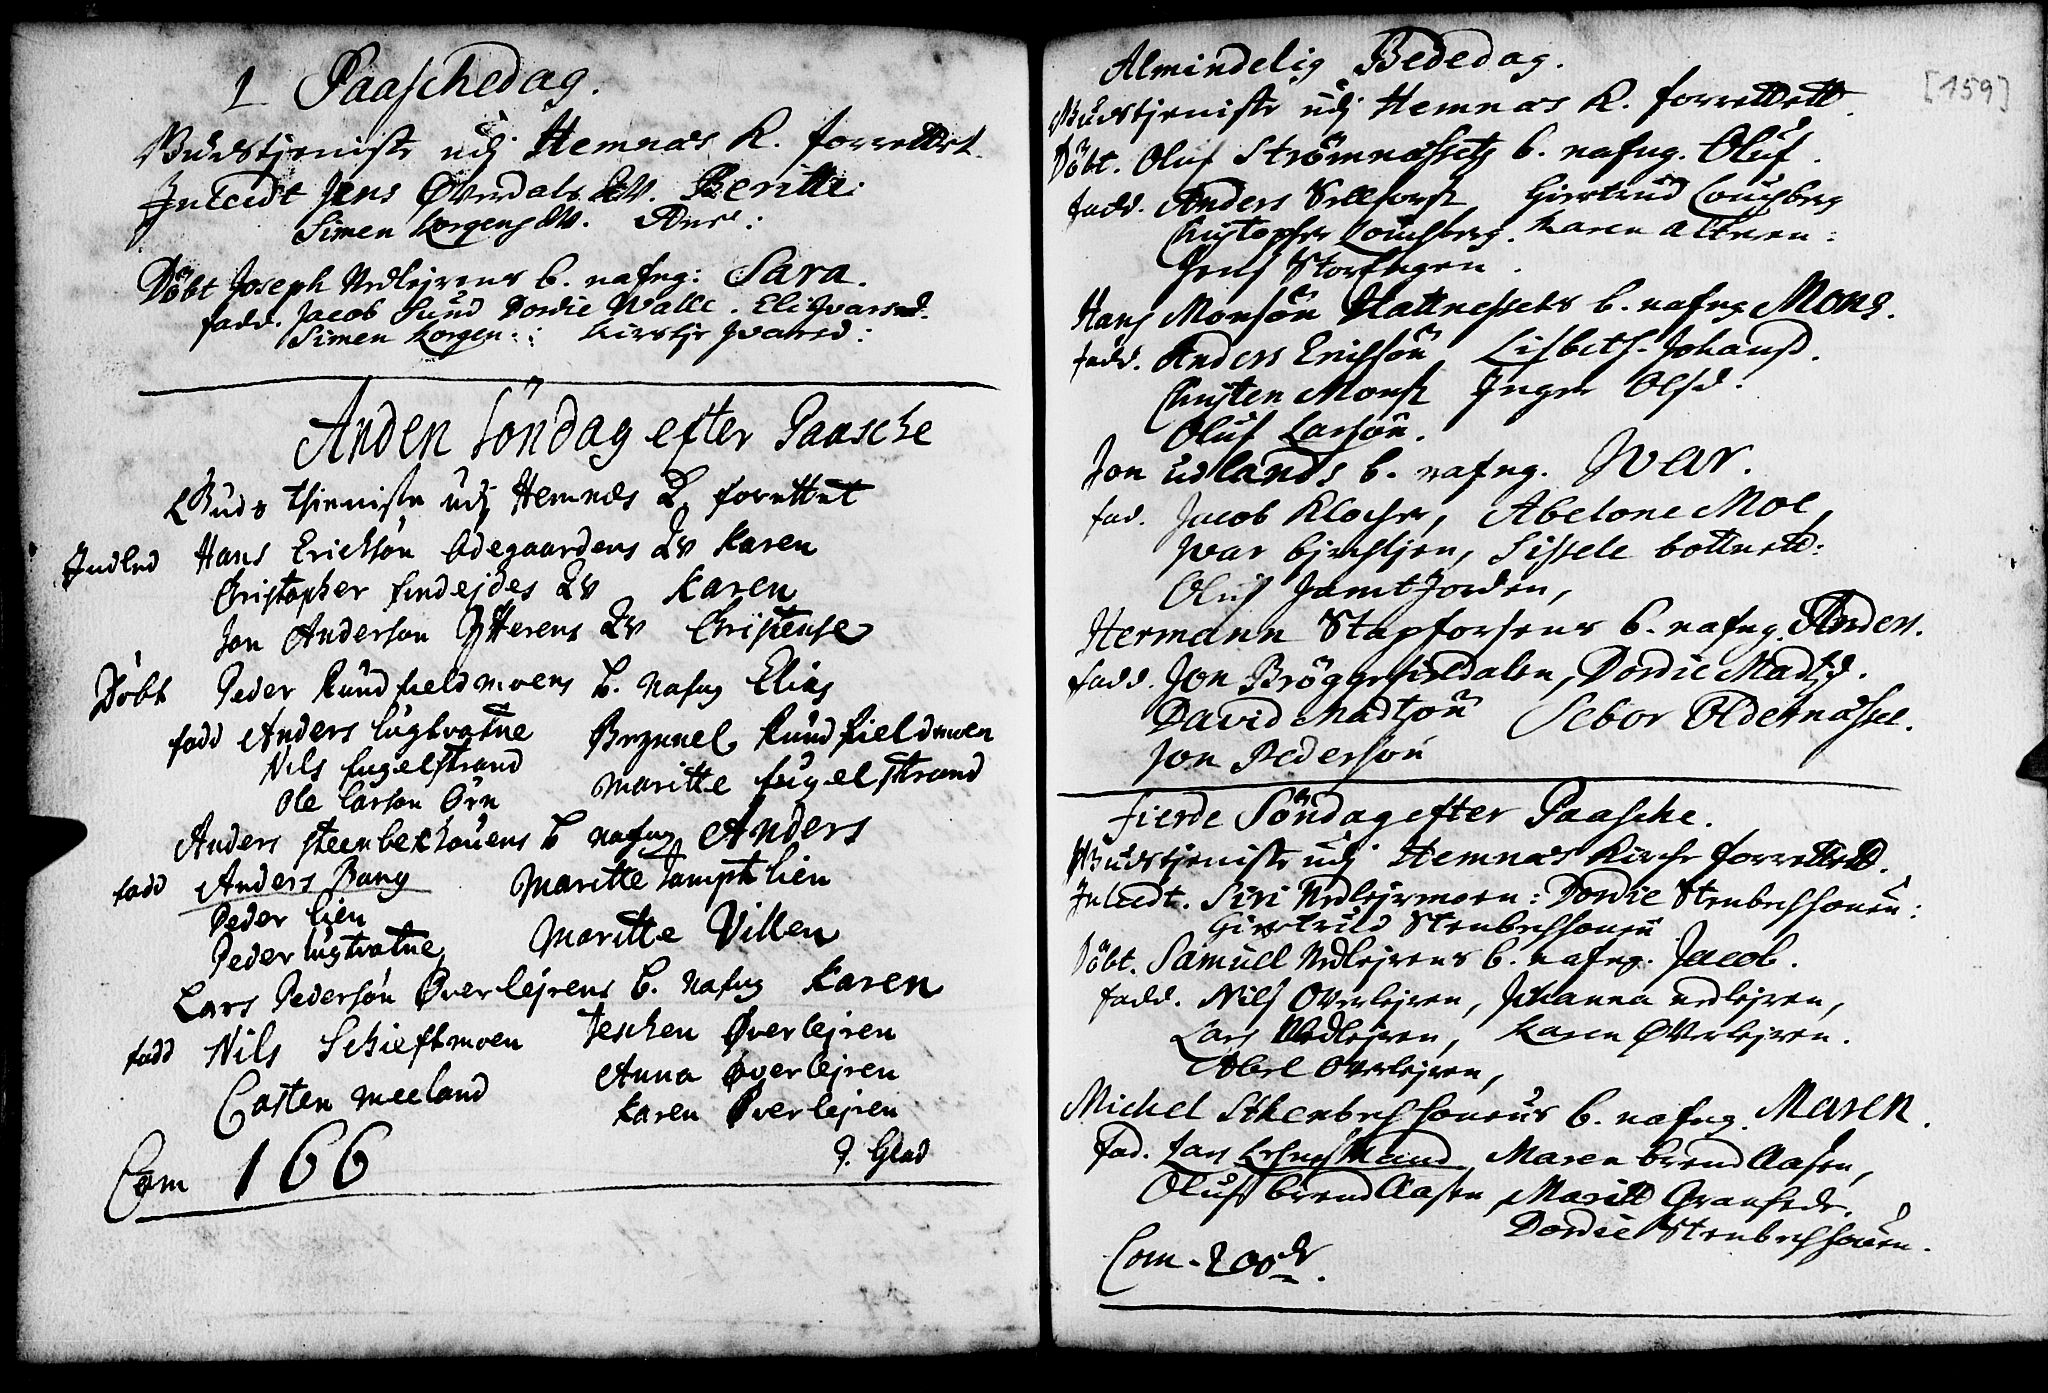 1 Paaschedag.
Gudstjeniste udj Hemnæs K. forrettet.
Inledt Jens Øverdals Qv. Beritte.
Simen Korgens Qv. Ane:
Döbt Joseph Nedlejrens b. nafng: Sara.
fadd. Jacob Sund Dordie Walle. Eli Ivarsd.
Simen Korgen:: Kirstje Ivarsd:
Anden Söndag efter Paasche
Guds thieniste udj Hemnæs K forettet
Indled Hans Erichsön Ödegaardens Qv Karen
Christopher Findejdes Qv Karen
Jon Anderson Ytterens Qv Christense
Döbt Peder Rundfieldmoens b. nafng Elias
fadd Anders Lugtvatne Brynnel Rundfieldmoen
Nils Fugelstrand Maritte Fugelstrand
Ole Larson Örn
Anders Steenbekhouens b nafng Anders
fadd Anders Bang Maritte Jamptlien
Peder Lien
Peder Lugtvatne Maritte Villen
Lars Pedersön Øverlejrens b. nafng Karen
fadd Nils Schieftmoen Jeschen Øverlejren
Casten Meeland Anna Øverlejren
Karen Øverlejren
J. Glad
Com 166
Almindelig Bededag.
[159]
Gudstjeniste udj Hemnæs K. forrettett.
Döbt. Oluf Strömnæssets b. nafng. Oluf.
fadd. Anders Giertrud Louchberg
Christopher Louchberg. Karen Alteren:
Jens Storfugen.
Hans Monsön Hattnessets b. nafng Mons.
fadd. Anders Erichsön Lisbeth Johansd.
Christen Mons Inger Olsd:
Oluf Larsön.
Jon Udlands b. nafng. Ivar.
fad. Jacob Klocher, Abelone Moe,
Ivar Sissele
Oluf Jamtjorden,
Hermann Stapforsens b. nafng. Anders.
fadd. Jon Bröggefieldalen, Dordie Madtzd.
David Madtsön Sebor Oldernæsset.
Jon Pedersön
Fierde Söndag efter Paasche.
Gudstjeniste udj Hemnæs Kirche forrettett.
Inledt. Siri Nedlejrmoen: Dordie Stenbechhouen:
Giertrud Stenbechhouen
Döbt. Samuel Nedlejrens b. nafng. Jacob.
fadd. Nils Overlejren, Johanna Nedlejren,
Lars Nedlejren, Karen Øverlejren.
Abel Overlejren,
Michel Stenbechhouens b. nafng. Maren.
fad. Lars Maren BrendAasen,
Oluf BrendAasen, Maritt Granhede.
Dordie Stenbechhouen.
Com. 200